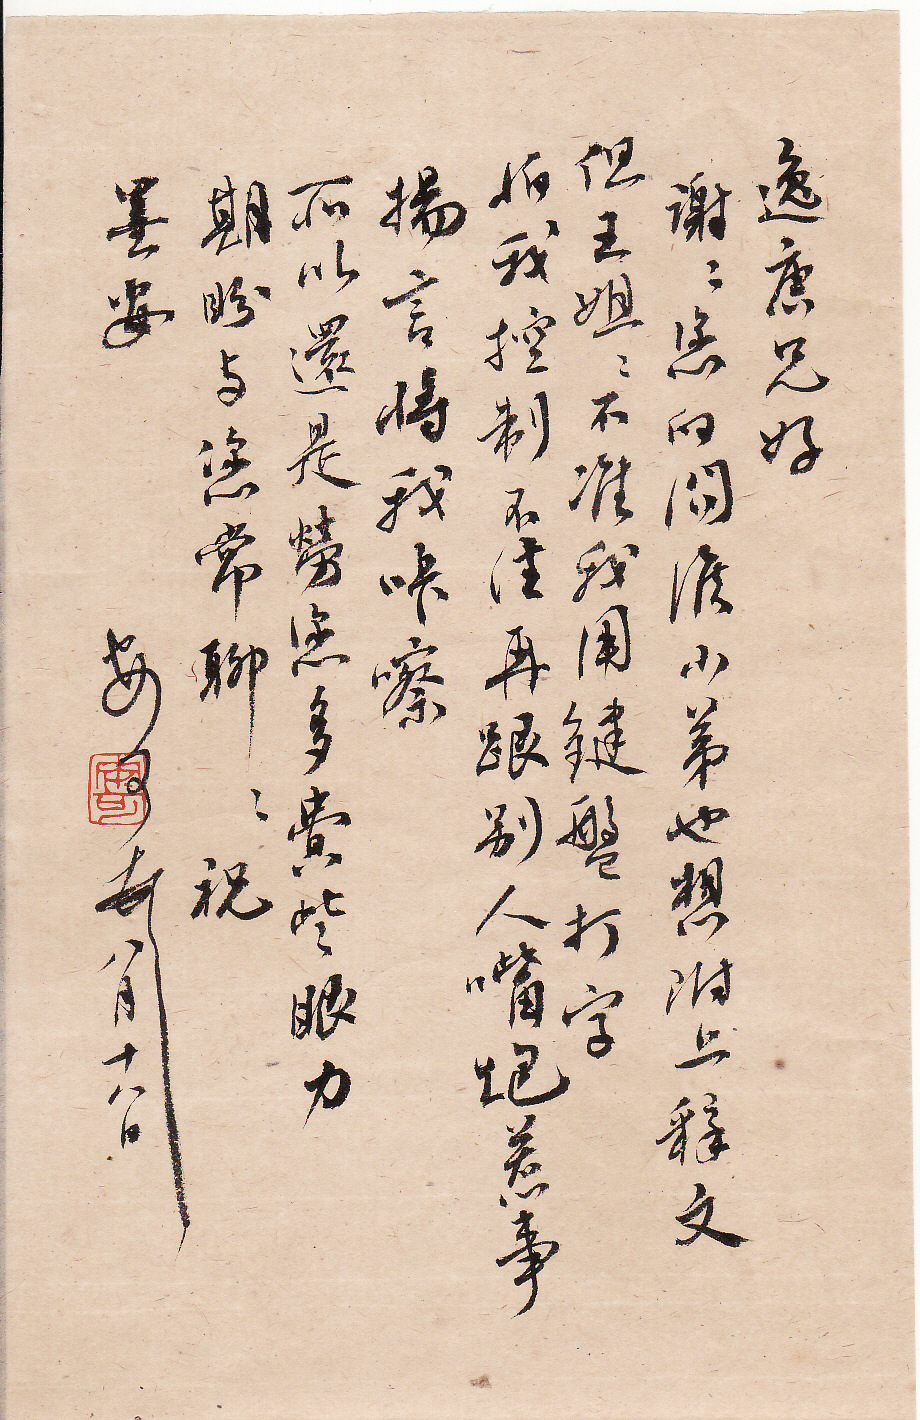 逸唐兄好
謝〻您的關懷小弟也想附上釋文
但王姐〻不准我用鍵盤打字
怕我控制不住再跟別人嘴炮惹事
揚言將我咔嚓
所以還是勞您多費些眼力
期盼与您常聊〻祝
安
八月十八日